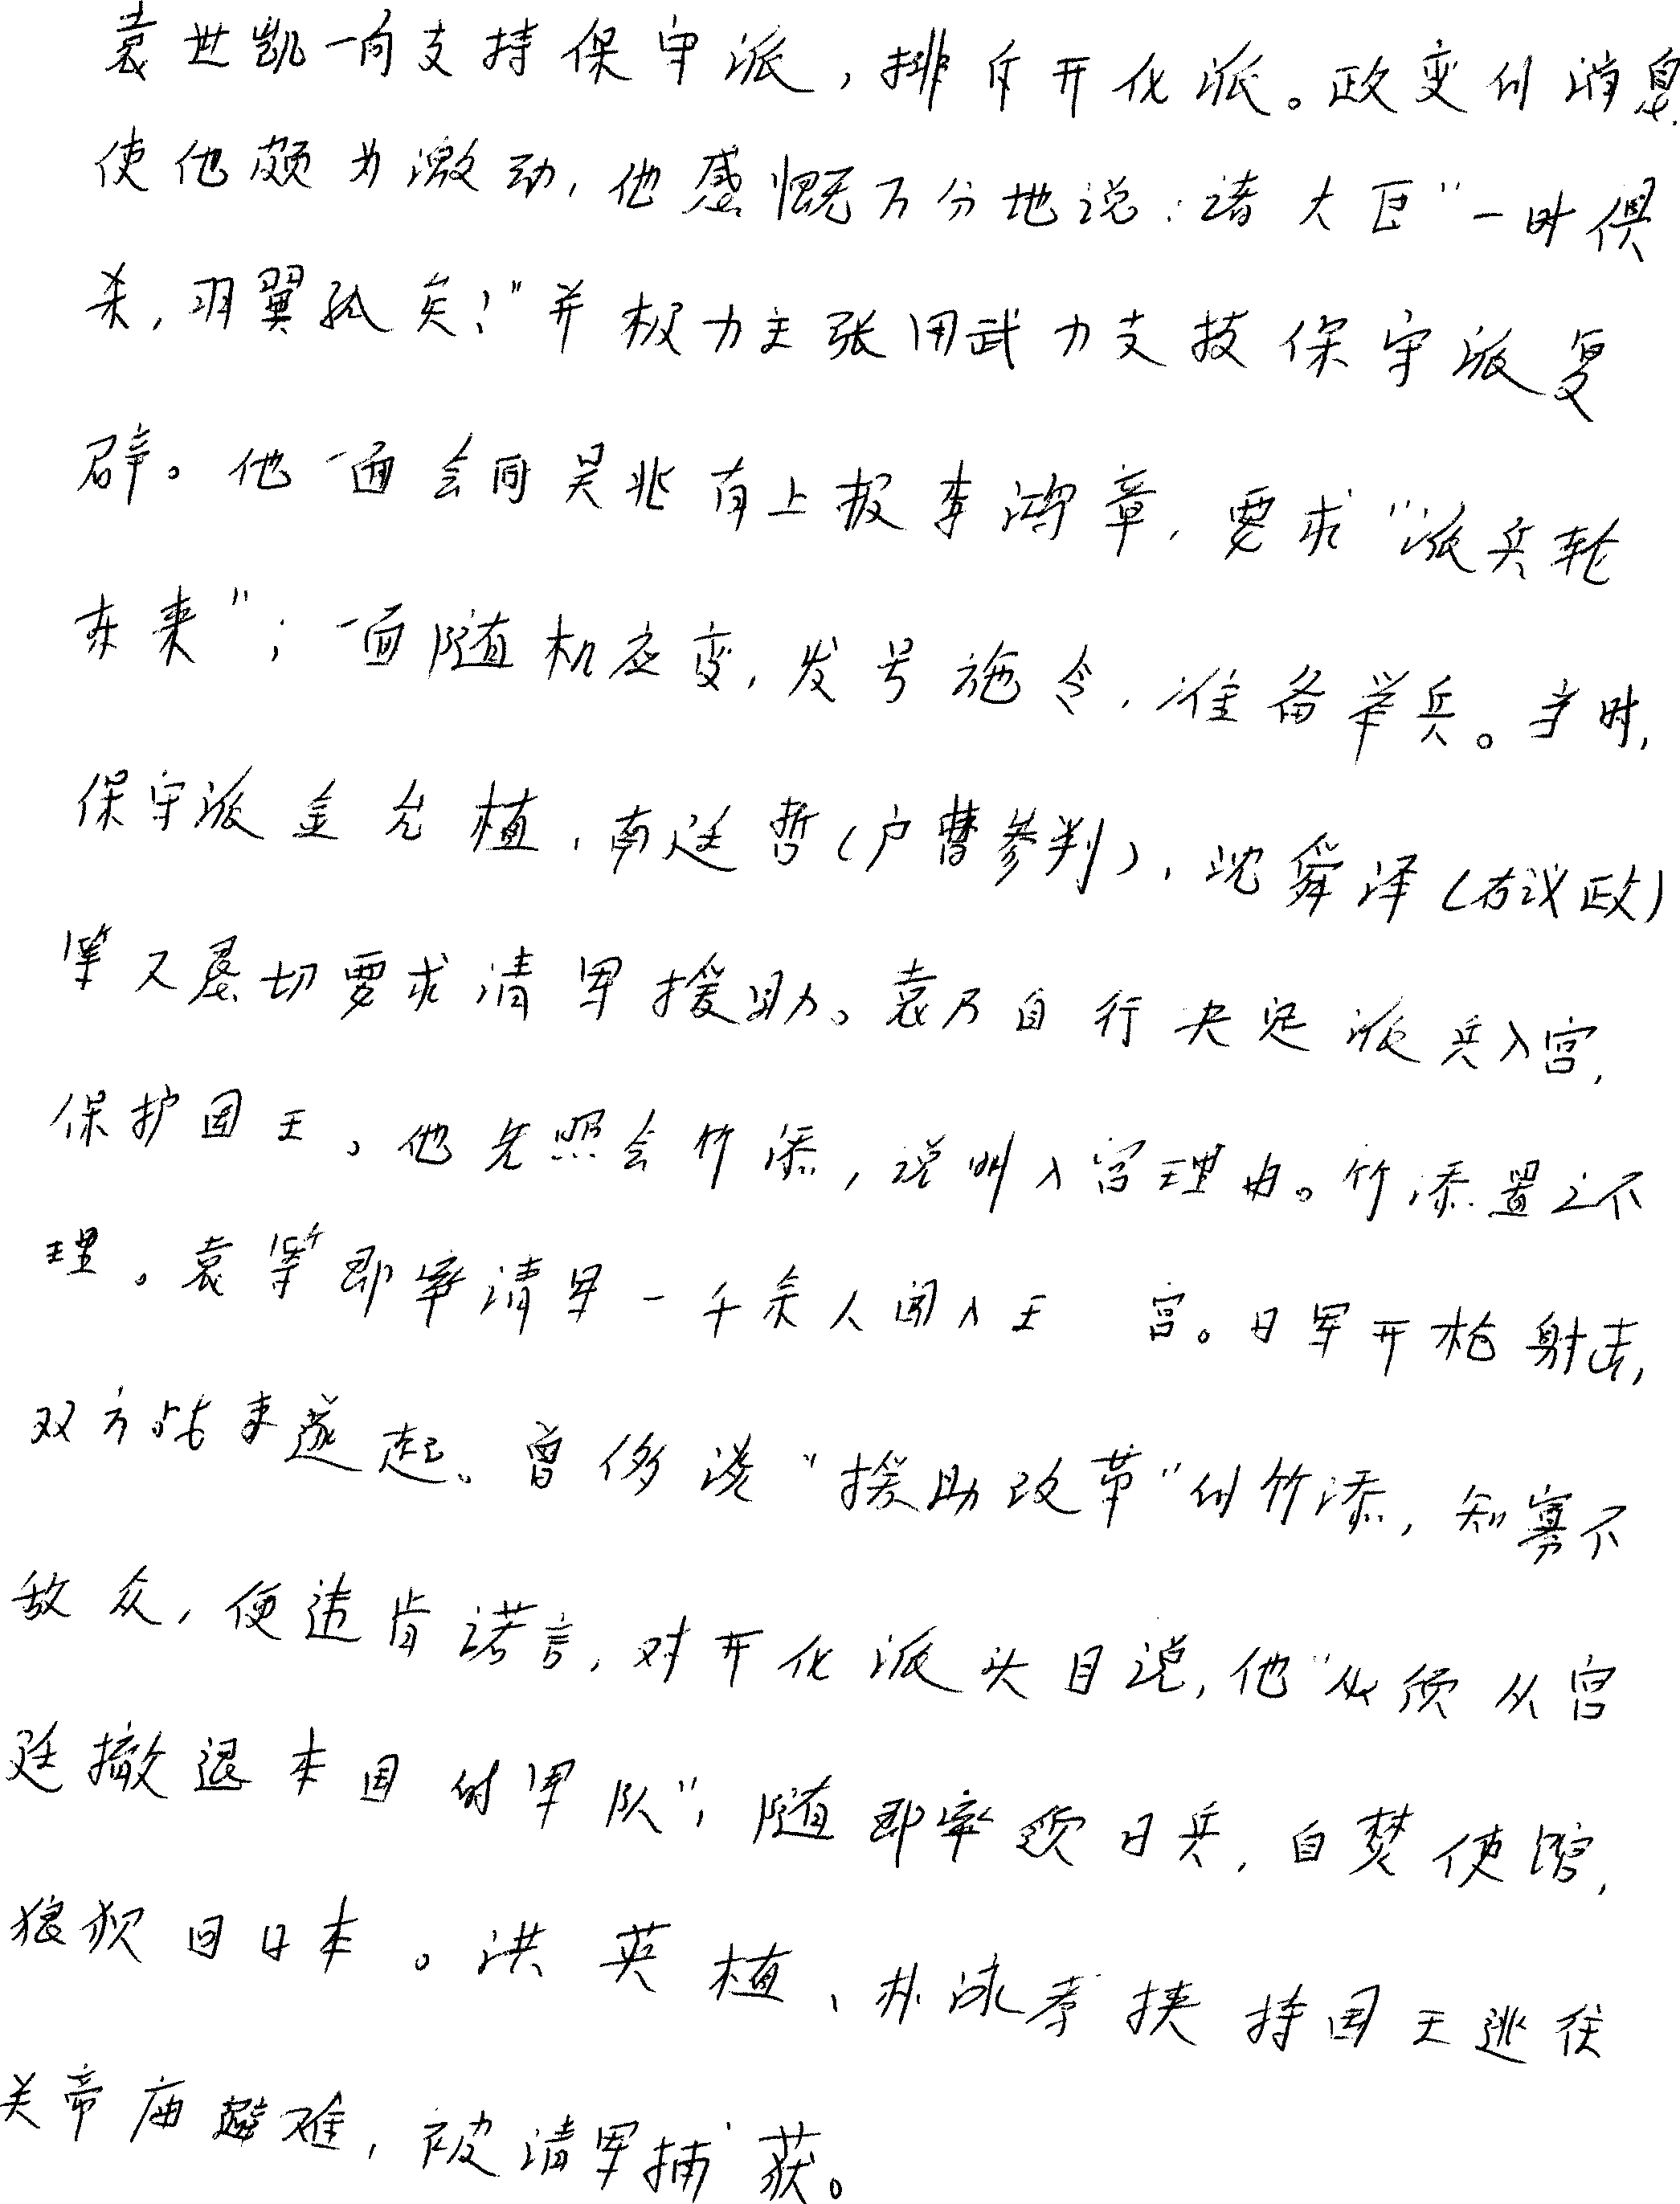 袁世凯一向支持保守派，排斥开化派。政变的消息
使他颇为激动，他感慨万分地说：诸大臣“一时俱
杀，羽翼孤矣！”并极力主张用武力支技保守派复
辟。他一面会同吴兆有上报李鸿章，要求“派兵轮
东来”；一面随机应变，发号施令，准备举兵。当时，
保守派金允植，南廷哲（户曹参判），沈舜泽（右议政）
等又恳切要求清军援助。袁乃自行决定派兵入宫，
保护国王。他先照会竹添，说明入宫理由。竹添置之不
理。袁等即率清军一千余人闯入王宫。日军开枪射击，
双方战末遂起。曾侈谈“援助改革”的竹添，知寡不
敌众，便违背诺言，对开化派头目说，他“必须从宫
廷撤退本国的军队”，随即率领日兵，自焚使馆，
狼狈回日本。洪英植、朴泳孝挟持国王逃往
关帝庙避难，被清军捕获。